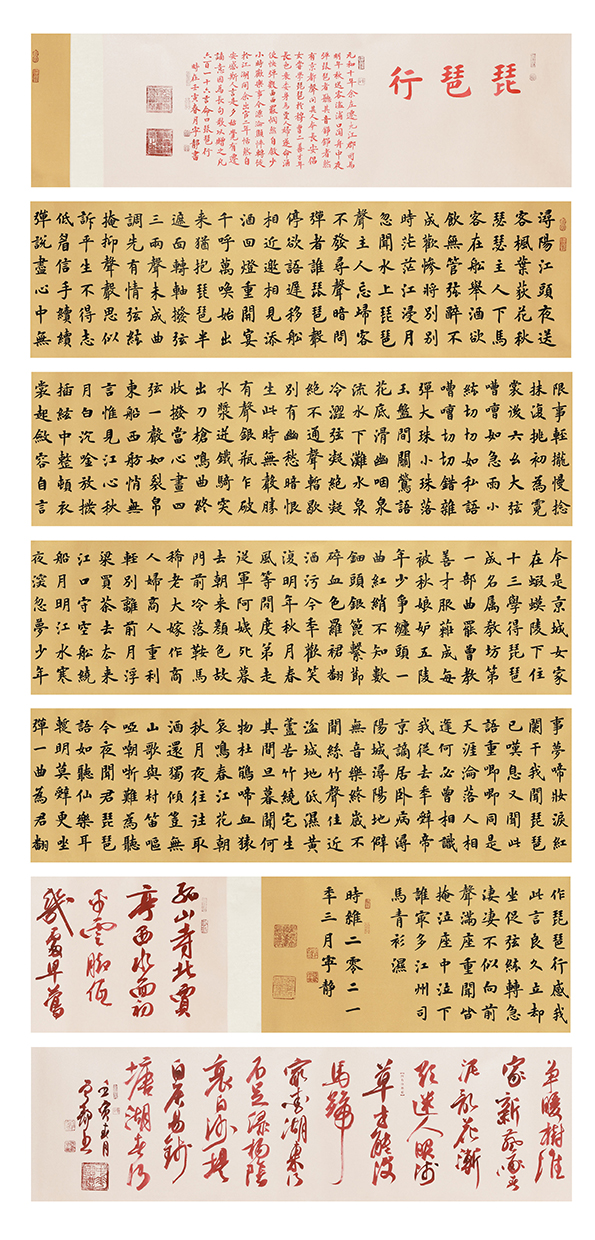 琵琶行
元和十年余左遷九江郡司馬
明年秋送客湓浦口聞舟中夜
彈琵琶者聽其音錚錚然
有京都聲問其人本長安倡
女嘗學琵琶於穆曹二善才年
長色衰委身為賈人婦遂命酒
使快彈數曲曲罷憫然自敘少
小時歡樂事今漂淪顦悴轉徙
於江湖間余出官二年恬然自
安感斯人言是夕始覺有遷
謫意因為長句歌以贈之凡
六百一十六言命曰琵琶行
時在壬寅春月寧靜書
潯陽江頭夜送
客楓葉荻花秋
瑟瑟主人下馬
客在船舉酒欲
飲無管弦醉不
成歡慘將別別
時茫茫江浸月
忽聞水上琵琶
聲主人忘歸客
不發尋聲暗問
彈者誰琵琶聲
停欲語遲移船
相近邀相見添
酒回燈重開宴
千呼萬喚始出
來猶抱琵琶半
遮面轉軸撥弦
三兩聲未成曲
調先有情弦弦
掩抑聲聲思似
訴平生不得志
低眉信手續續
彈說盡心中無
限事輕攏慢捻
抹復挑初為霓
裳後六幺大弦
嘈嘈如急雨小
弦切切如私語
嘈嘈切切錯雜
彈大珠小珠落
玉盤間關鶯語
花底滑幽咽泉
流水下灘水泉
冷澀弦凝絕凝
絕不通聲暫歇
別有幽愁暗恨
生此時無聲勝
有聲銀瓶乍破
水漿迸鐵騎突
出刀槍鳴曲終
收撥當心畫四
弦一聲如裂帛
東船西舫悄無
言惟見江心秋
月白沉吟放撥
插弦中整頓衣
裳起斂容自言
本是京城女家
在蝦蟆陵下住
十三學得琵琶
成名屬教坊第
一部曲罷曾教
善才服妝成每
被秋娘妒五陵
年少爭纏頭一
曲紅綃不知數
鈿頭銀篦擊節
碎血色羅裙翻
酒污今年歡笑
復明年秋月春
風等閒度弟走
從軍阿姨死暮
去朝來顏色故
門前冷落鞍馬
稀老大嫁作商
人婦商人重利
輕別離前月浮
梁買茶去去來
江口守空船繞
船月明江水寒
夜深忽夢少年
事夢啼妝淚紅
闌干我聞琵琶
已嘆息又聞此
語重唧唧同是
天涯淪落人相
逢何必曾相識
我從去年辭帝
京謫居臥病潯
陽城潯陽地僻
無音樂終歲不
聞絲竹聲住近
湓城地低濕黃
蘆苦竹繞宅生
其間旦暮聞何
物杜鵑啼血猿
哀鳴春江花朝
秋月夜往往取
酒還獨傾豈無
山歌與村笛嘔
啞嘲哳難為聽
今夜聞君琵琶
語如聽仙樂耳
暫明莫辭更坐
彈一曲為君翻
作琵琶行感我
此言良久立却
坐促弦弦轉急
淒淒不似向前
聲滿座重聞皆
掩泣座中泣下
誰冣多江州司
馬青衫濕
時維二零二一
年三月寧靜
孤山寺北賈
亭西水面初
平雲腳低
幾處早鶯
爭暖樹誰
家新燕啄春
泥亂花漸
欲迷人眼淺
草才能沒
馬蹄
最愛湖東行
不足綠楊陰
裏白沙堤
白居易錢
塘湖春行
壬寅春月
寧靜書